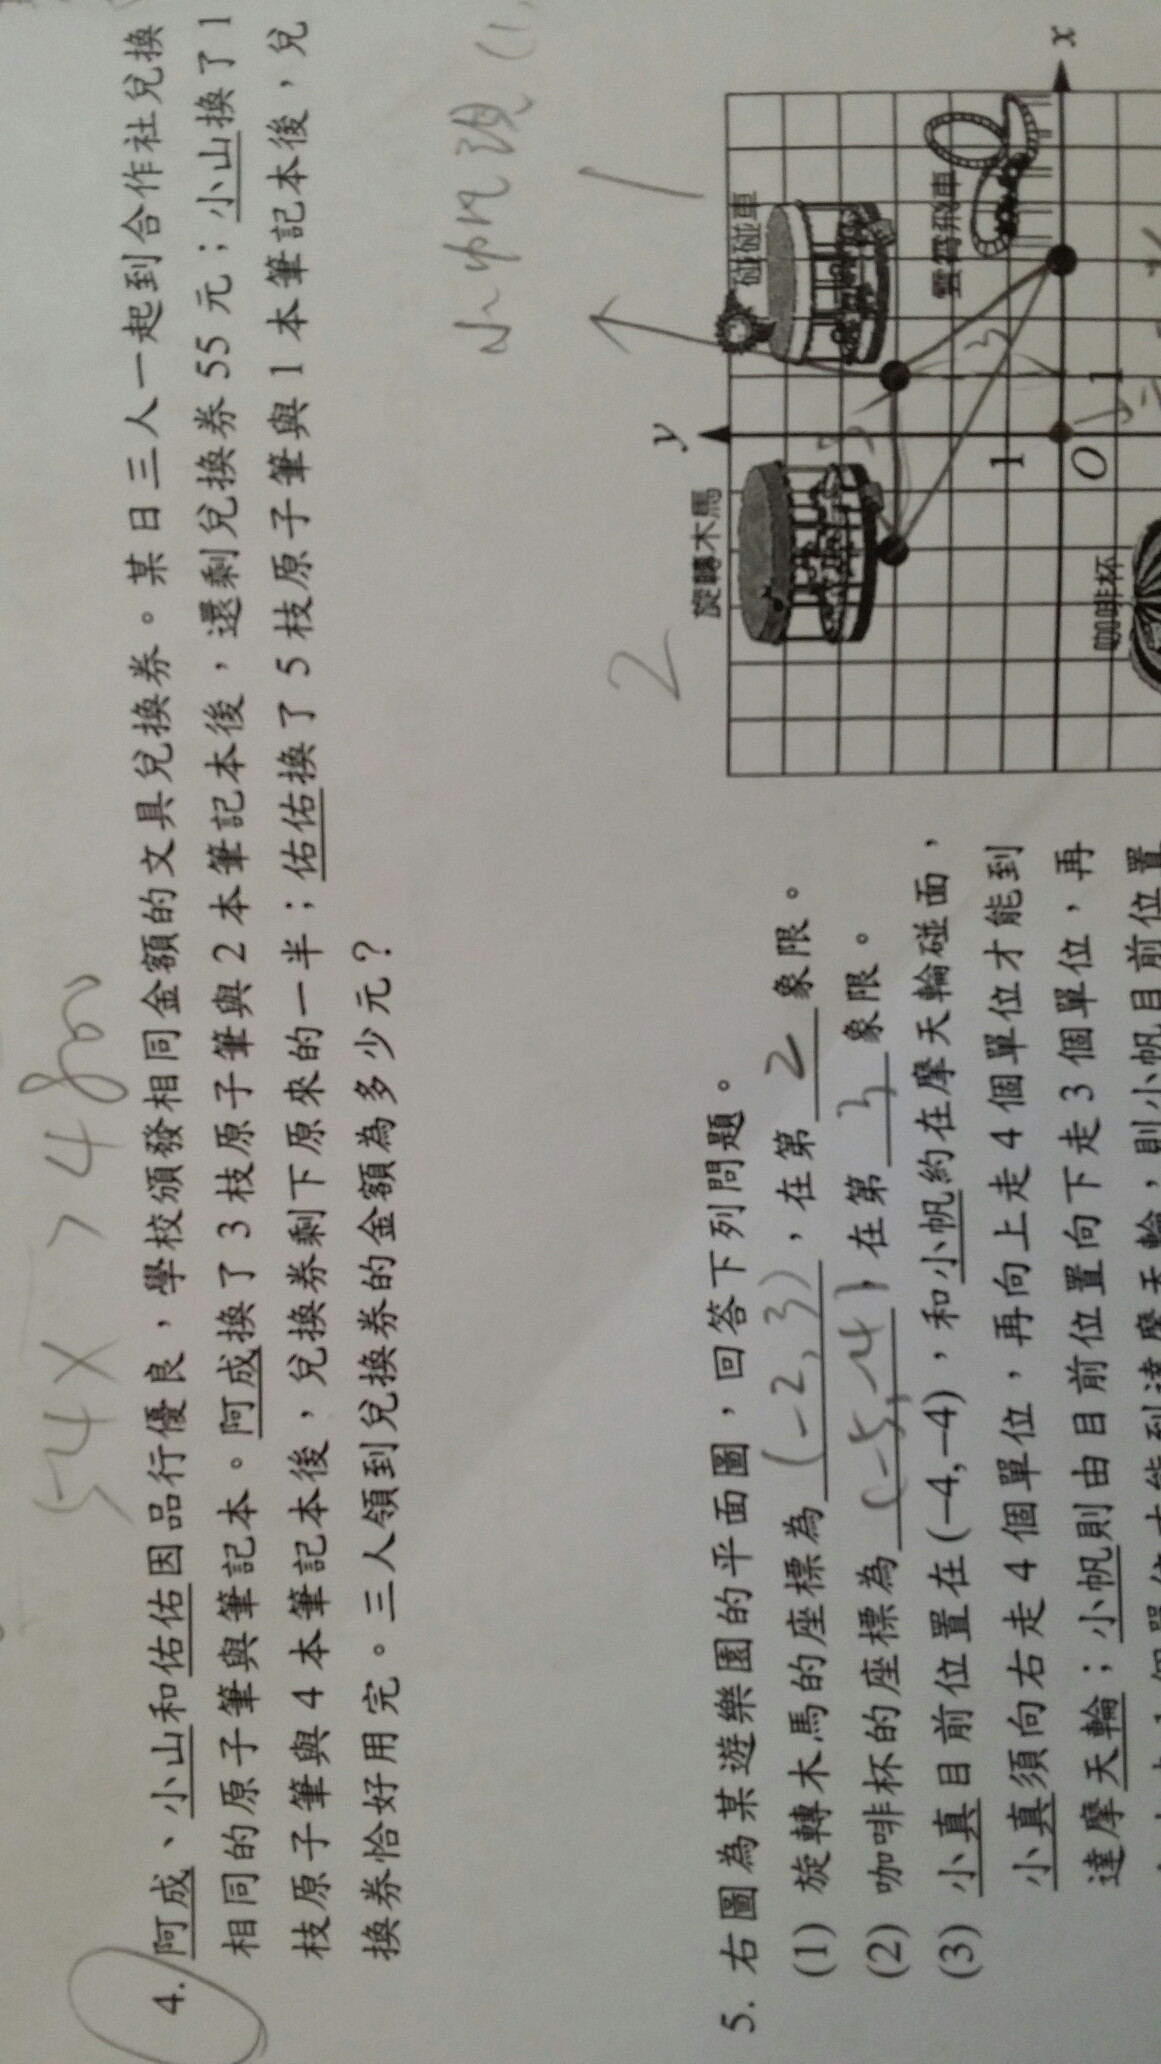 -4x > 480
4. 阿成、小山和佑佑因品行優良，學校頒發相同金額的文具兌換券。某日三人一起到合作社兌換
相同的原子筆與筆記本。阿成換了3枝原子筆與2本筆記本後，還剩兌換券55元；小山換了1
枝原子筆與4本筆記本後，兌換券剩下原來的一半；佑佑換了5枝原子筆與1本筆記本後，兌
換券恰好用完。三人領到兌換券的金額為多少元？
小帆現(1,
5. 右圖為某遊樂園的平面圖，回答下列問題。
(1) 旋轉木馬的座標為(-2,3)，在第2象限。
(2) 咖啡杯的座標為(-5,-4)，在第3象限。
(3) 小真目前位置在(−4,−4)，和小帆約在摩天輪碰面，
小真須向右走4個單位，再向上走4個單位才能到
達摩天輪；小帆則由目前位置向下走3個單位，再
則小帆目前位置
2
1
y
旋轉木馬
碰碰車
雲霄飛車
3
3
1
O
1
x
咖啡杯